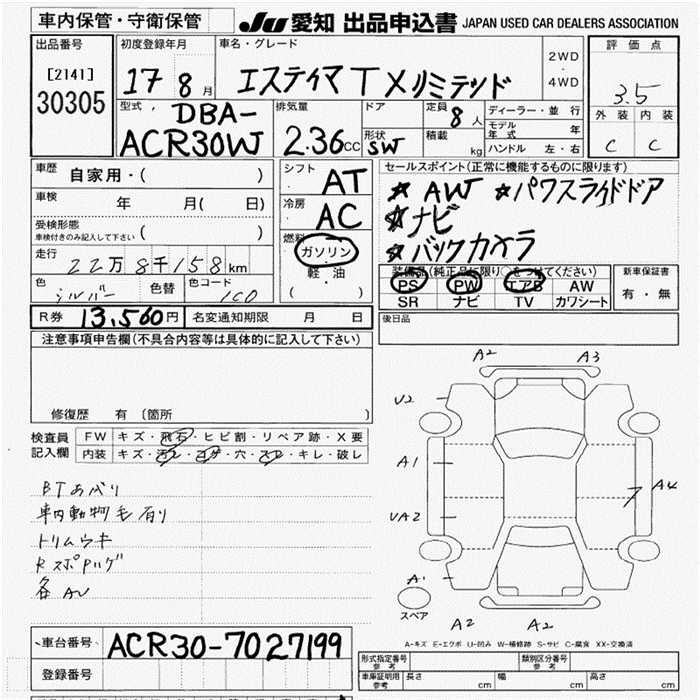 車内保管・守衛保管
JU 愛知 出品申込書 JAPAN USED CAR DEALERS ASSOCIATION
出品番号
[2141]
30305
初度登録年月
17 8 月
車名・グレード
エスティマ T Xリミテッド
2WD
・
4WD
評価点
3.5
外装 内装
C C
型式
DBA-
ACR30W
排気量
2.36cc
ドア
形状
SW
定員
8人
積載
kg
ディーラー・並行
モデル年式 年
ハンドル 左・右
車歴
自家用・( )
車検
年 月( 日)
受検形態
車検付きのみ記入して下さい
( )
走行
22万8千158km
色
シルバー
色替
色コード
1C0
シフト
AT
冷房
AC
燃料
ガソリン
・
軽・油
( )
セールスポイント(正常に機能するものに限ります)
☆ AW ☆パワスライドドア
☆ナビ
☆バックカメラ
装備品(純正品に限り○をつけてください)
PS PW エアB AW
SR ナビ TV カワシート
新車保証書
有・無
R券 13,560円 名変通知期限 月 日
後日品
注意事項申告欄(不具合内容等は具体的に記入して下さい)
修復歴 有 〔箇所 〕
検査員
記入欄
FW キズ・飛石・ヒビ割・リペア跡・X要
内装 キズ・汚レ・コゲ・穴・スレ・キレ・破レ
車内動物毛有り
トリムウキ
各AU
A2 A3
U2
A1
A4
UA2
A1
スペア
A2 A2
A-キズ E-エクボ U-凹み W-補修跡 S-サビ C-腐食 XX-交換済
車台番号 ACR30-7027199
登録番号
形式指定番号
参考
類別区分番号
参考
車庫証明用
参考
長さ cm 幅 cm 高さ cm